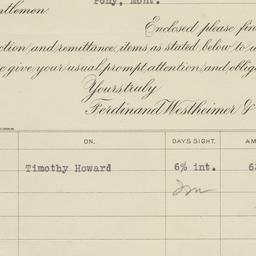 Pony, Mont.
ntlemen:
Enclosed please fin
ction and remittance, items, as stated below to u
e give your usual prompt attention, and oblig
Yours truly
Ferdinand Westheimer &
ON. DAYS SIGHT. AM
Timothy Howard 6% int. 6